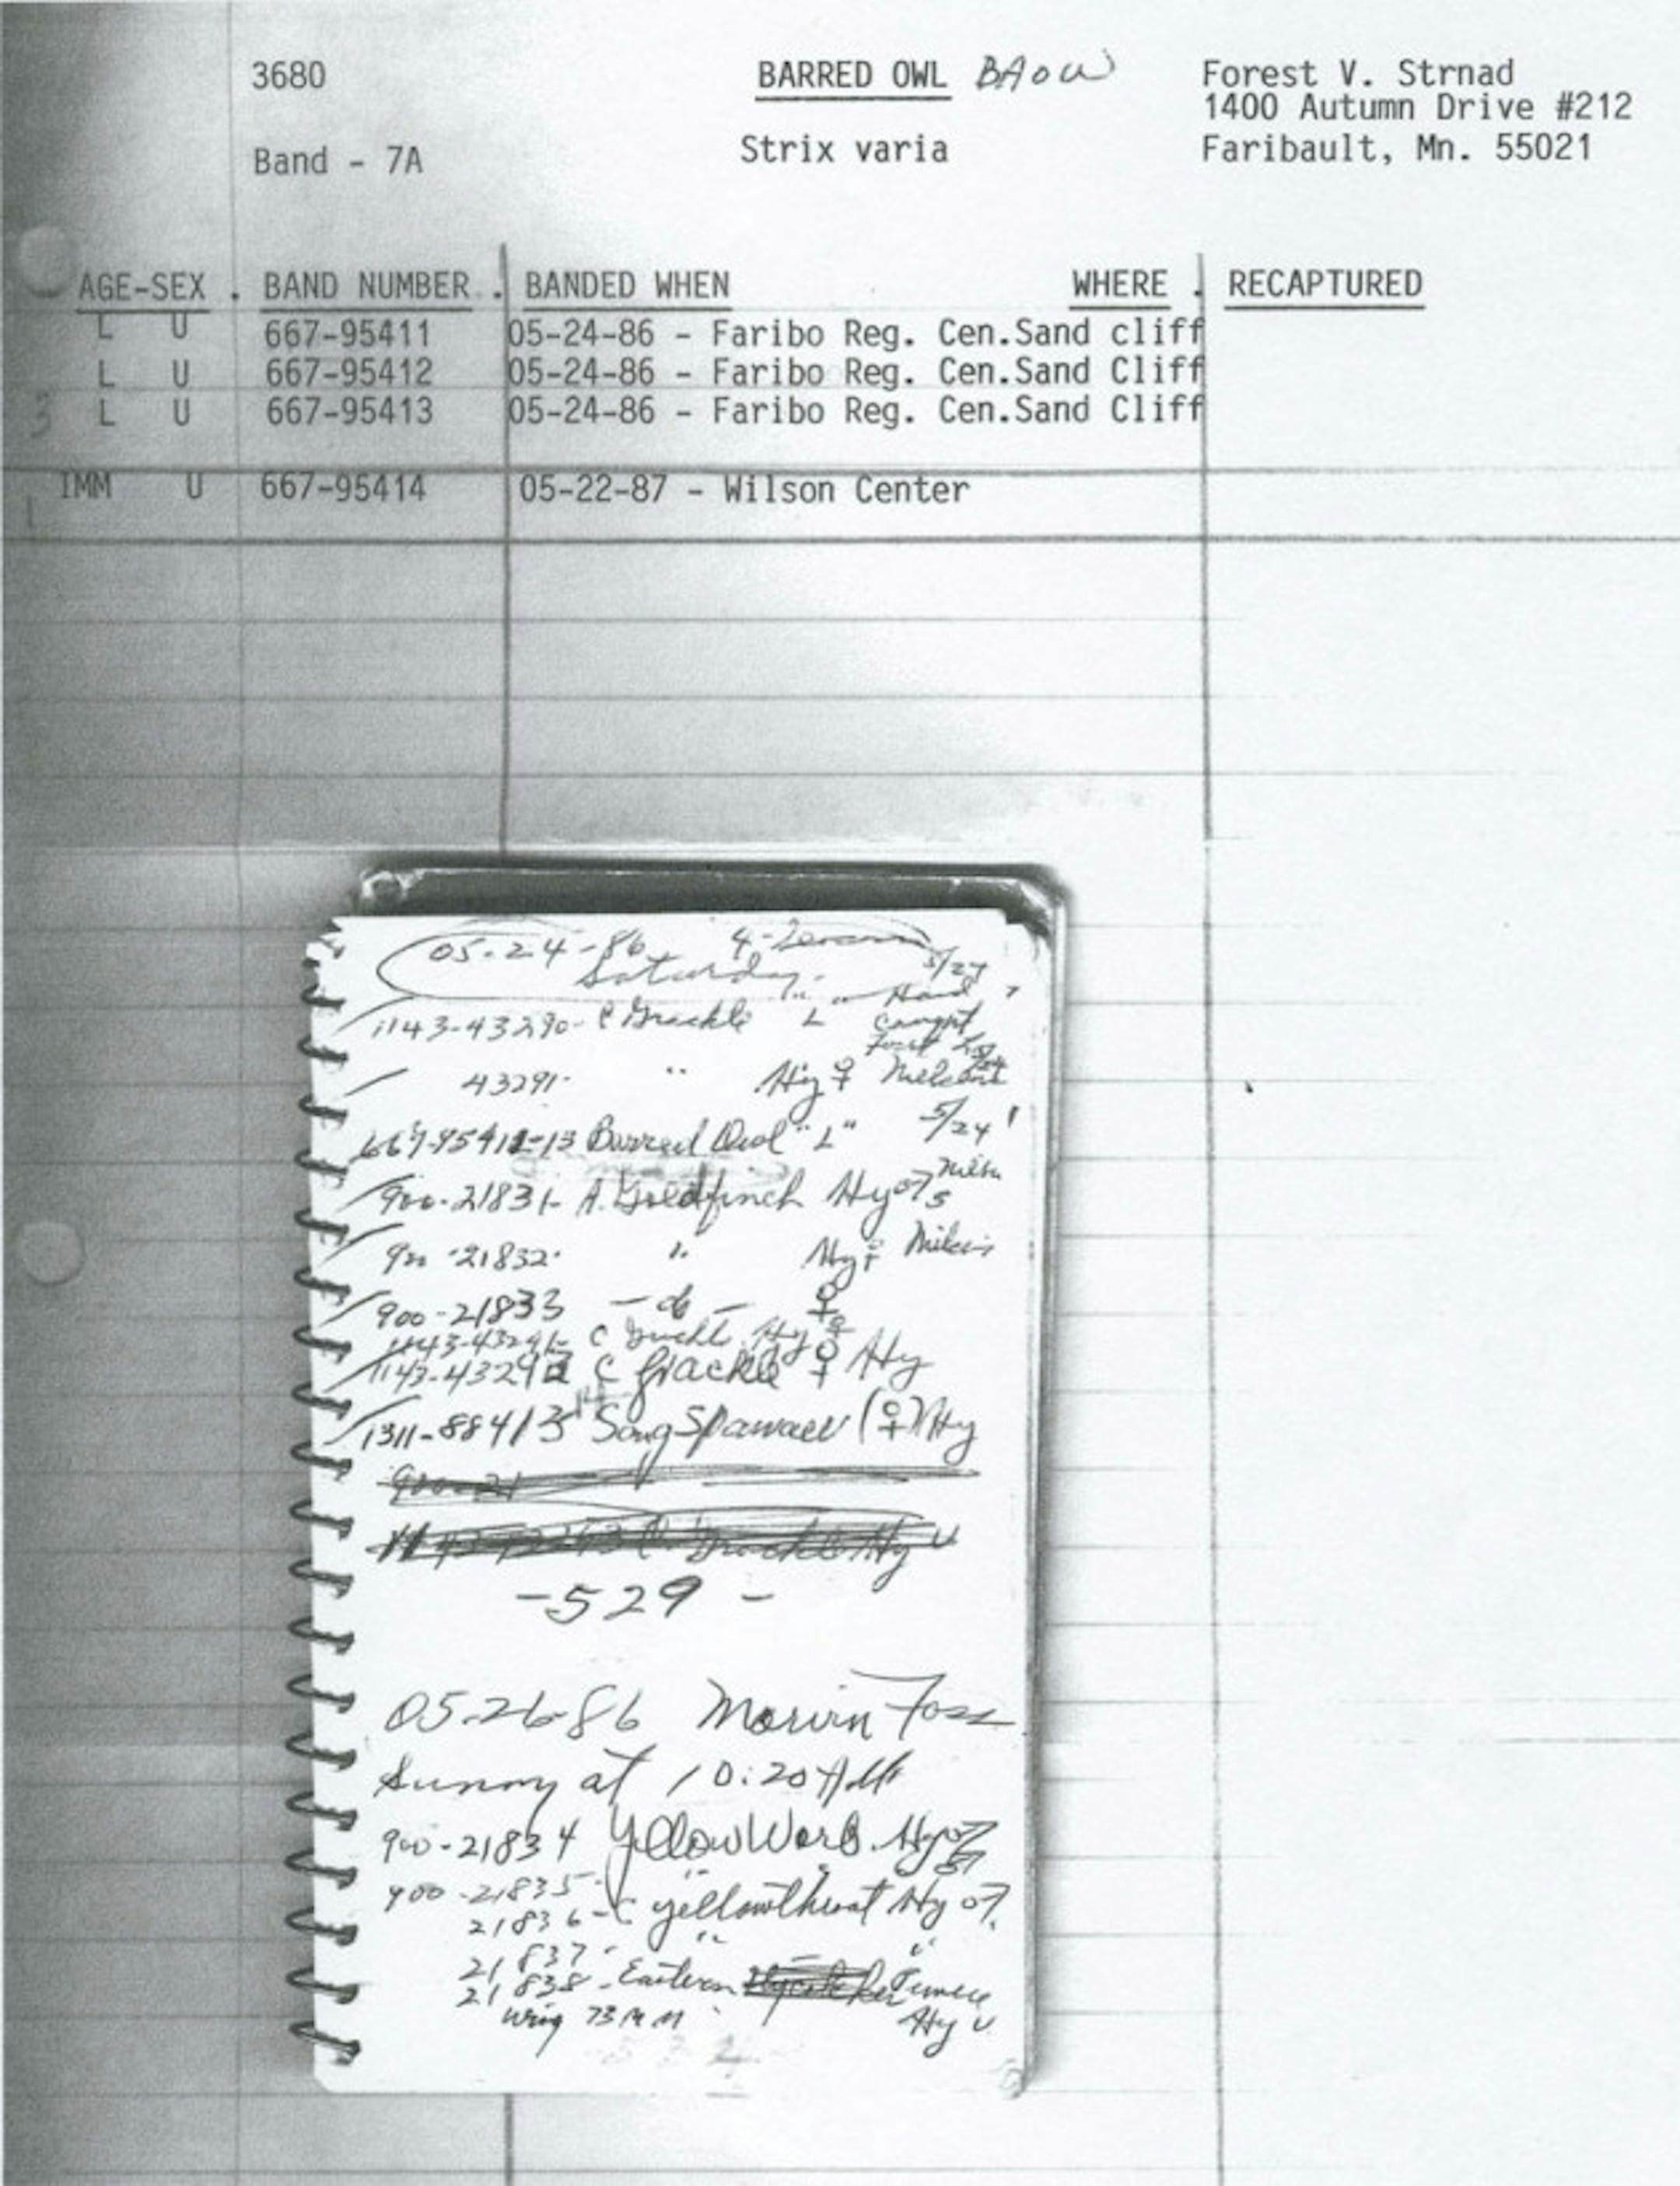 3680 BARRED OWL BAOW Forest V. Strnad
1400 Autumn Drive #212
Band - 7A Strix varia Faribault, Mn. 55021
AGE-SEX . BAND NUMBER . BANDED WHEN WHERE . RECAPTURED
L U 667-95411 05-24-86 - Faribo Reg. Cen.Sand cliff
L U 667-95412 05-24-86 - Faribo Reg. Cen.Sand Cliff
3 L U 667-95413 05-24-86 - Faribo Reg. Cen.Sand Cliff
IMM U 667-95414 05-22-87 - Wilson Center
1
05-24-86
Saturday 5/24
Hand
1143-43290- C Grackle L Caught
43291- " Hy ♀
667-95411-13 Barred Owl "L" 5/24
900-21831- A. Goldfinch Hy ♂
900-21832- " Hy ♀
900-21833 - do - ♀
1143-43291- C Grackl Hy ♀
1143-43292 C Grackle ♀ Hy
1311-88413 Song Sparrow (♀) Hy
900-21
C. Grackle Hy U
-529-
05-26-86 Marvin Foss
Sunny at 10:20 AM
900-21834 Yellow Warb. Hy ♂
900-21835- " "
21836- C Yellowthroat Hy ♂
21837- " "
21838- Eastern
Wing 73 MM Hy U